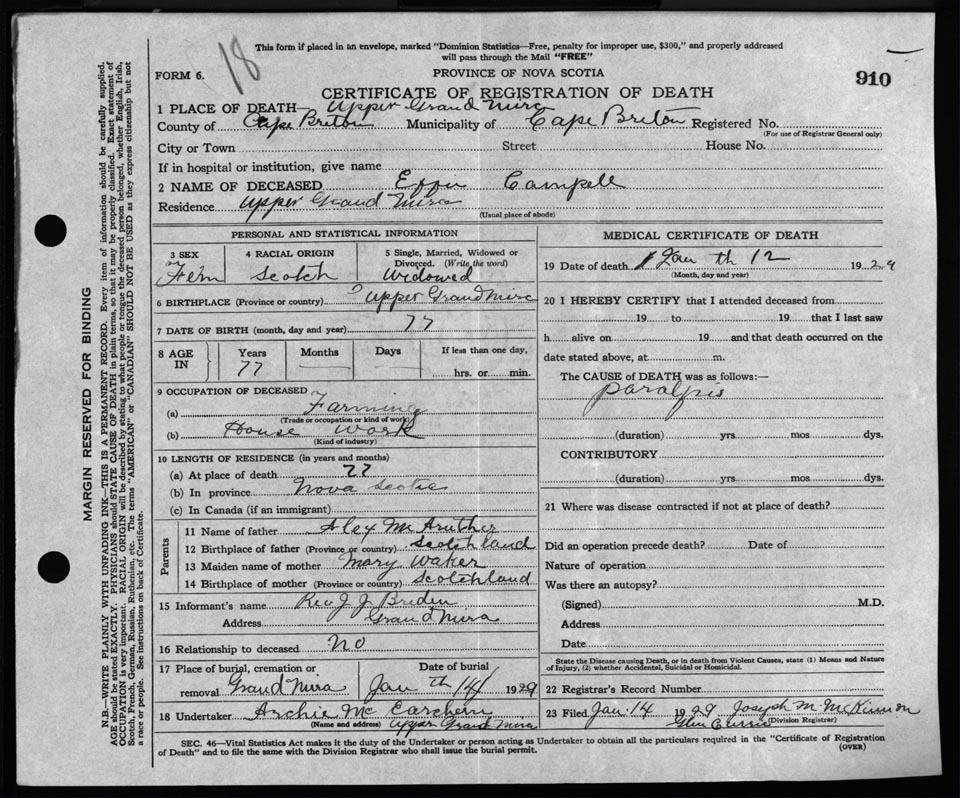 18
This form if placed in an envelope, marked "Dominion Statistics—Free, penalty for improper use, $300," and properly addressed
will pass through the Mail "FREE"
FORM 6.
PROVINCE OF NOVA SCOTIA
910
CERTIFICATE OF REGISTRATION OF DEATH
1 PLACE OF DEATH— Upper Grand Mira
County of Cape Breton Municipality of Cape Breton Registered No.
(For use of Registrar General only)
City or Town Street House No.
If in hospital or institution, give name
2 NAME OF DECEASED Effie Campell
Residence Upper Grand Mira
(Usual place of abode)
PERSONAL AND STATISTICAL INFORMATION
3 SEX
Fem
4 RACIAL ORIGIN
Scotch
5 Single, Married, Widowed or
Divorced. (Write the word)
Widowed
6 BIRTHPLACE (Province or country) Upper Grand Mira
7 DATE OF BIRTH (month, day and year) 77
8 AGE
IN
Years
77
Months
Days
If less than one day,
hrs. or min.
9 OCCUPATION OF DECEASED
(a) Farming
(Trade or occupation or kind of work)
(b) House Work
(Kind of industry)
10 LENGTH OF RESIDENCE (in years and months)
(a) At place of death 77
(b) In province Nova Scotia
(c) In Canada (if an immigrant)
Parents
11 Name of father Alex
12 Birthplace of father (Province or country) Scotchland
13 Maiden name of mother Mary
14 Birthplace of mother (Province or country) Scotchland
15 Informant's name Rev J J
Address Grand Mira
16 Relationship to deceased No
17 Place of burial, cremation or
removal Grand Mira
Date of burial
Jan th 14 1929
18 Undertaker Archie Mc Eachern
(Name and address) Upper Grand Mira
MEDICAL CERTIFICATE OF DEATH
19 Date of death Jan th 12 1929
(Month, day and year)
20 I HEREBY CERTIFY that I attended deceased from
19 to 19 that I last saw
h alive on 19 and that death occurred on the
date stated above, at m.
The CAUSE of DEATH was as follows:—
Paralysis
(duration) yrs mos dys.
CONTRIBUTORY
(duration) yrs mos dys.
21 Where was disease contracted if not at place of death?
Did an operation precede death? Date of
Nature of operation
Was there an autopsy?
(Signed) M.D.
Address
Date
State the Disease causing Death, or in death from Violent Causes, state (1) Means and Nature
of Injury, (2) whether Accidental, Suicidal or Homicidal.
22 Registrar's Record Number
23 Filed Jan. 14 1929 Joseph M McKinnon
(Division Registrar)
SEC. 46—Vital Statistics Act makes it the duty of the Undertaker or person acting as Undertaker to obtain all the particulars required in the "Certificate of Registration
of Death" and to file the same with the Division Registrar who shall issue the burial permit.
(OVER)
MARGIN RESERVED FOR BINDING
N.B.—WRITE PLAINLY WITH UNFADING INK—THIS IS A PERMANENT RECORD. Every item of information should be carefully supplied.
AGE should be stated EXACTLY. PHYSICIANS should STATE CAUSE OF DEATH in plain terms, so that it may be properly classified. Exact statement of
OCCUPATION is very important. RACIAL ORIGIN will be described by stating to what people or tongue the deceased person belonged, whether English, Irish,
Scotch, French, German, Russian, Ruthenian, etc. The terms "AMERICAN" or "CANADIAN" SHOULD NOT BE USED as they express citizenship but not
a race or people. See instructions on back of Certificate.